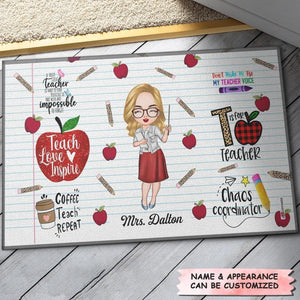 Teacher
impossible
Don't Make Me Use
MY TEACHER VOICE
Teach
Love
Inspire
T is for
TEACHER
COFFEE
Teach
REPEAT
Chaos
coordinator
Mrs. Dalton
NAME & APPEARANCE
CAN BE CUSTOMIZED